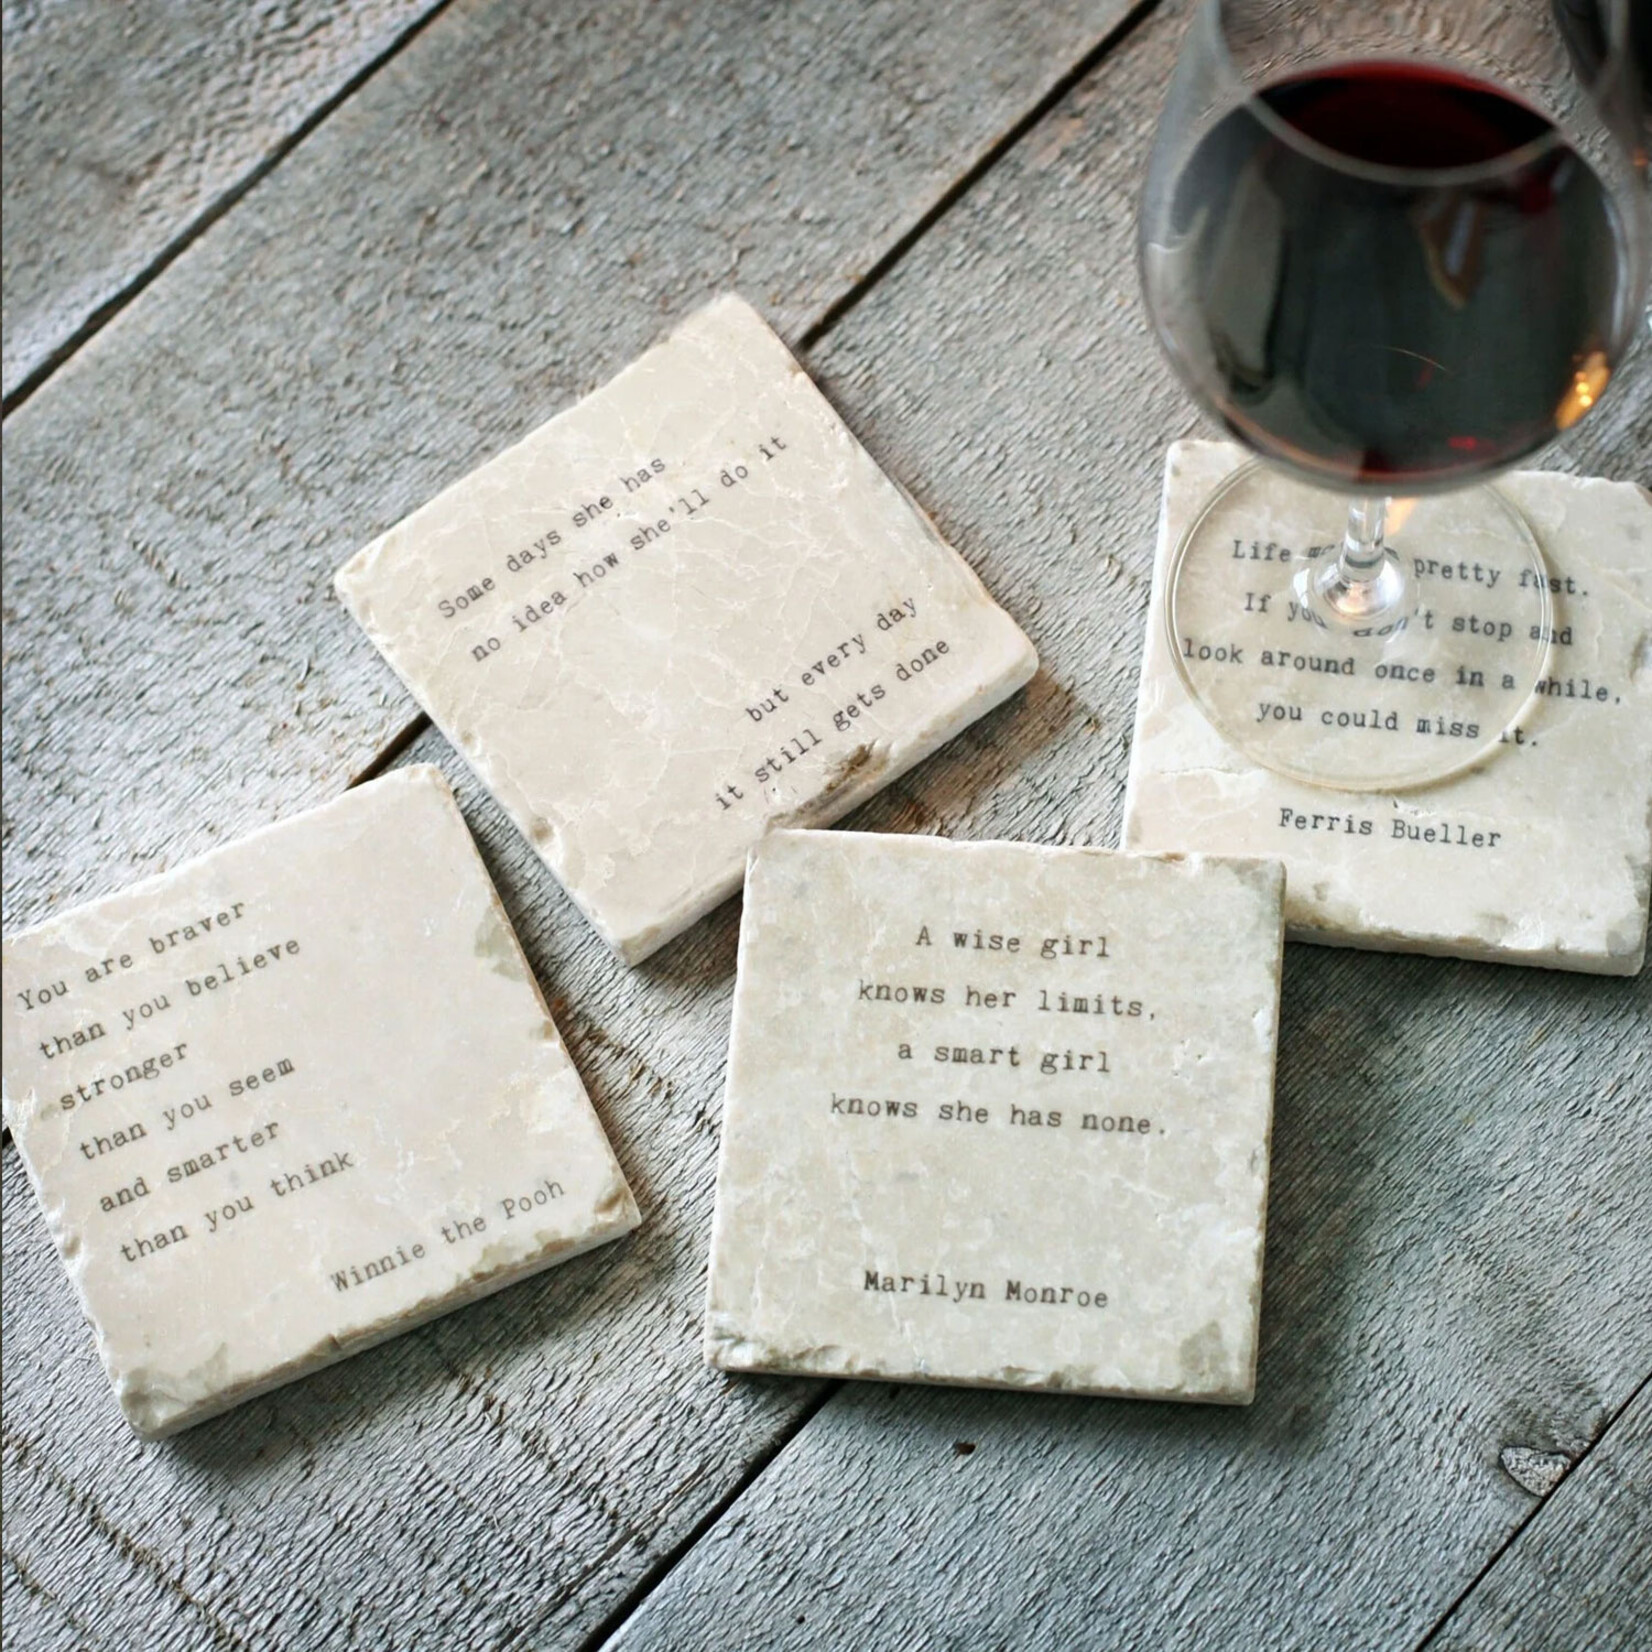 Some days she has
no idea how she'll do it
but every day
it still gets done
Life moves pretty fast.
If you don't stop and
look around once in a while,
you could miss it.
Ferris Bueller
You are braver
than you believe
stronger
than you seem
and smarter
than you think
Winnie the Pooh
A wise girl
knows her limits,
a smart girl
knows she has none.
Marilyn Monroe